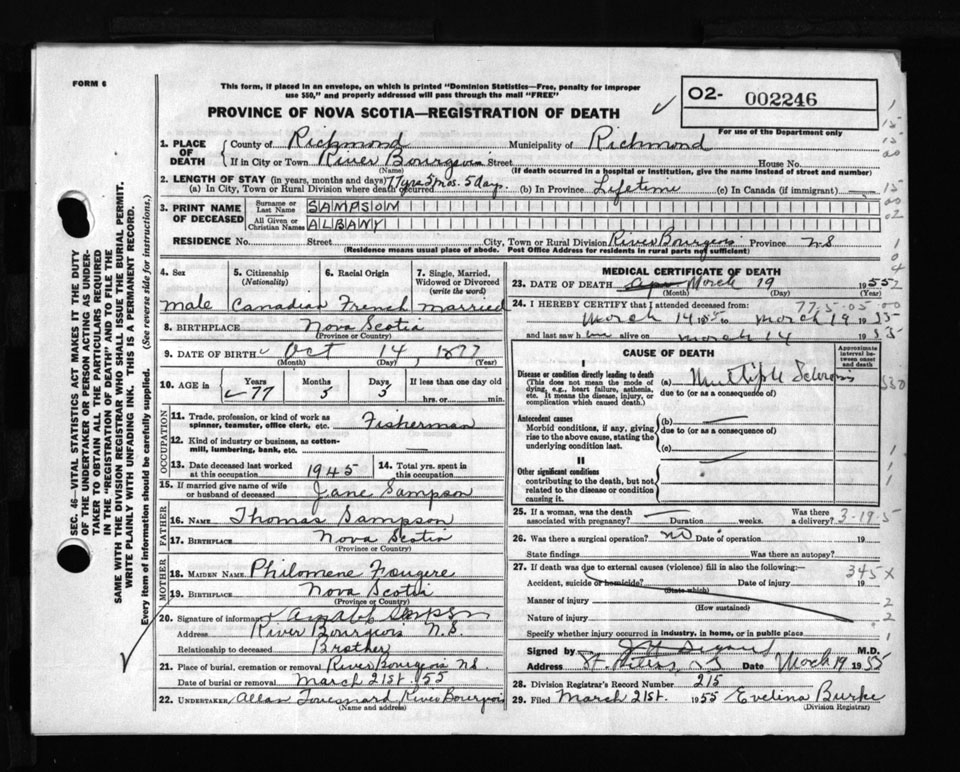 FORM 6
This form, if placed in an envelope, on which is printed "Dominion Statistics—Free, penalty for improper
use $50," and properly addressed will pass through the mail "FREE"
PROVINCE OF NOVA SCOTIA—REGISTRATION OF DEATH
✓
O2- 002246
For use of the Department only
1. PLACE OF DEATH County of Richmond Municipality of Richmond
If in City or Town River Bourgeois Street House No.
(Name) (If death occurred in a hospital or institution, give the name instead of street and number)
2. LENGTH OF STAY (in years, months and days)
(a) In City, Town or Rural Division where death occurred 77 yrs 5 mos. 5 days. (b) In Province Lifetime (c) In Canada (if immigrant)
3. PRINT NAME OF DECEASED
Surname or Last Name SAMPSON
All Given or Christian Names ALBANY
RESIDENCE No. Street City, Town or Rural Division River Bourgeois Province N S
(Residence means usual place of abode. Post Office Address for residents in rural parts not sufficient)
4. Sex 5. Citizenship (Nationality) 6. Racial Origin 7. Single, Married, Widowed or Divorced (write the word)
male Canadian French married
8. BIRTHPLACE Nova Scotia
(Province or Country)
9. DATE OF BIRTH Oct 14 1877
(Month) (Day) (Year)
10. AGE in Years Months Days If less than one day old
77 5 5 hrs. or min.
OCCUPATION
11. Trade, profession, or kind of work as
spinner, teamster, office clerk, etc. Fisherman
12. Kind of industry or business, as cotton-
mill, lumbering, bank, etc. —
13. Date deceased last worked at this occupation 1945 14. Total yrs. spent in this occupation
15. If married give name of wife
or husband of deceased Jane Sampson
FATHER
16. NAME Thomas Sampson
17. BIRTHPLACE Nova Scotia
(Province or Country)
MOTHER
18. MAIDEN NAME Philomene Fougere
19. BIRTHPLACE Nova Scotia
(Province or Country)
20. Signature of informant Sampson
Address River Bourgeois N.S.
Relationship to deceased Brother
21. Place of burial, cremation or removal River Bourgeois N.S.
Date of burial or removal March 21st. 1955
22. UNDERTAKER Allan River Bourgeois
(Name and address)
MEDICAL CERTIFICATE OF DEATH
23. DATE OF DEATH March 19 1955
(Month) (Day) (Year)
24. I HEREBY CERTIFY that I attended deceased from: 775-05-00
March 14 1955 to March 19 1955
and last saw him alive on March 14 1955
CAUSE OF DEATH
Approximate interval between onset and death
I
Disease or condition directly leading to death
(This does not mean the mode of dying, e.g., heart failure, asthenia, etc. It means the disease, injury, or complication which caused death.)
(a) Multiple Sclerosis
due to (or as a consequence of)
Antecedent causes
Morbid conditions, if any, giving rise to the above cause, stating the underlying condition last.
(b) —
due to (or as a consequence of)
(c)
II
Other significant conditions
contributing to the death, but not related to the disease or condition causing it.
25. If a woman, was the death associated with pregnancy? Duration weeks. Was there a delivery? 3-19-5
26. Was there a surgical operation? no Date of operation 19
State findings Was there an autopsy?
27. If death was due to external causes (violence) fill in also the following:— 345 X
Accident, suicide or homicide? Date of injury 19
(State which)
Manner of injury
(How sustained)
Nature of injury
Specify whether injury occurred in industry, in home, or in public place
Signed by M.D.
Address St. Peters, N S Date March 19 1955
28. Division Registrar's Record Number 215
29. Filed March 21st. 1955 Evelina Burke
(Division Registrar)
SEC. 46 VITAL STATISTICS ACT MAKES IT THE DUTY
OF THE UNDERTAKER OR PERSON ACTING AS UNDER-
TAKER TO OBTAIN ALL THE PARTICULARS REQUIRED
IN THE "REGISTRATION OF DEATH" AND TO FILE THE
SAME WITH THE DIVISION REGISTRAR WHO SHALL ISSUE THE BURIAL PERMIT.
WRITE PLAINLY WITH UNFADING INK. THIS IS A PERMANENT RECORD.
Every item of information should be carefully supplied. (See reverse side for instructions.)